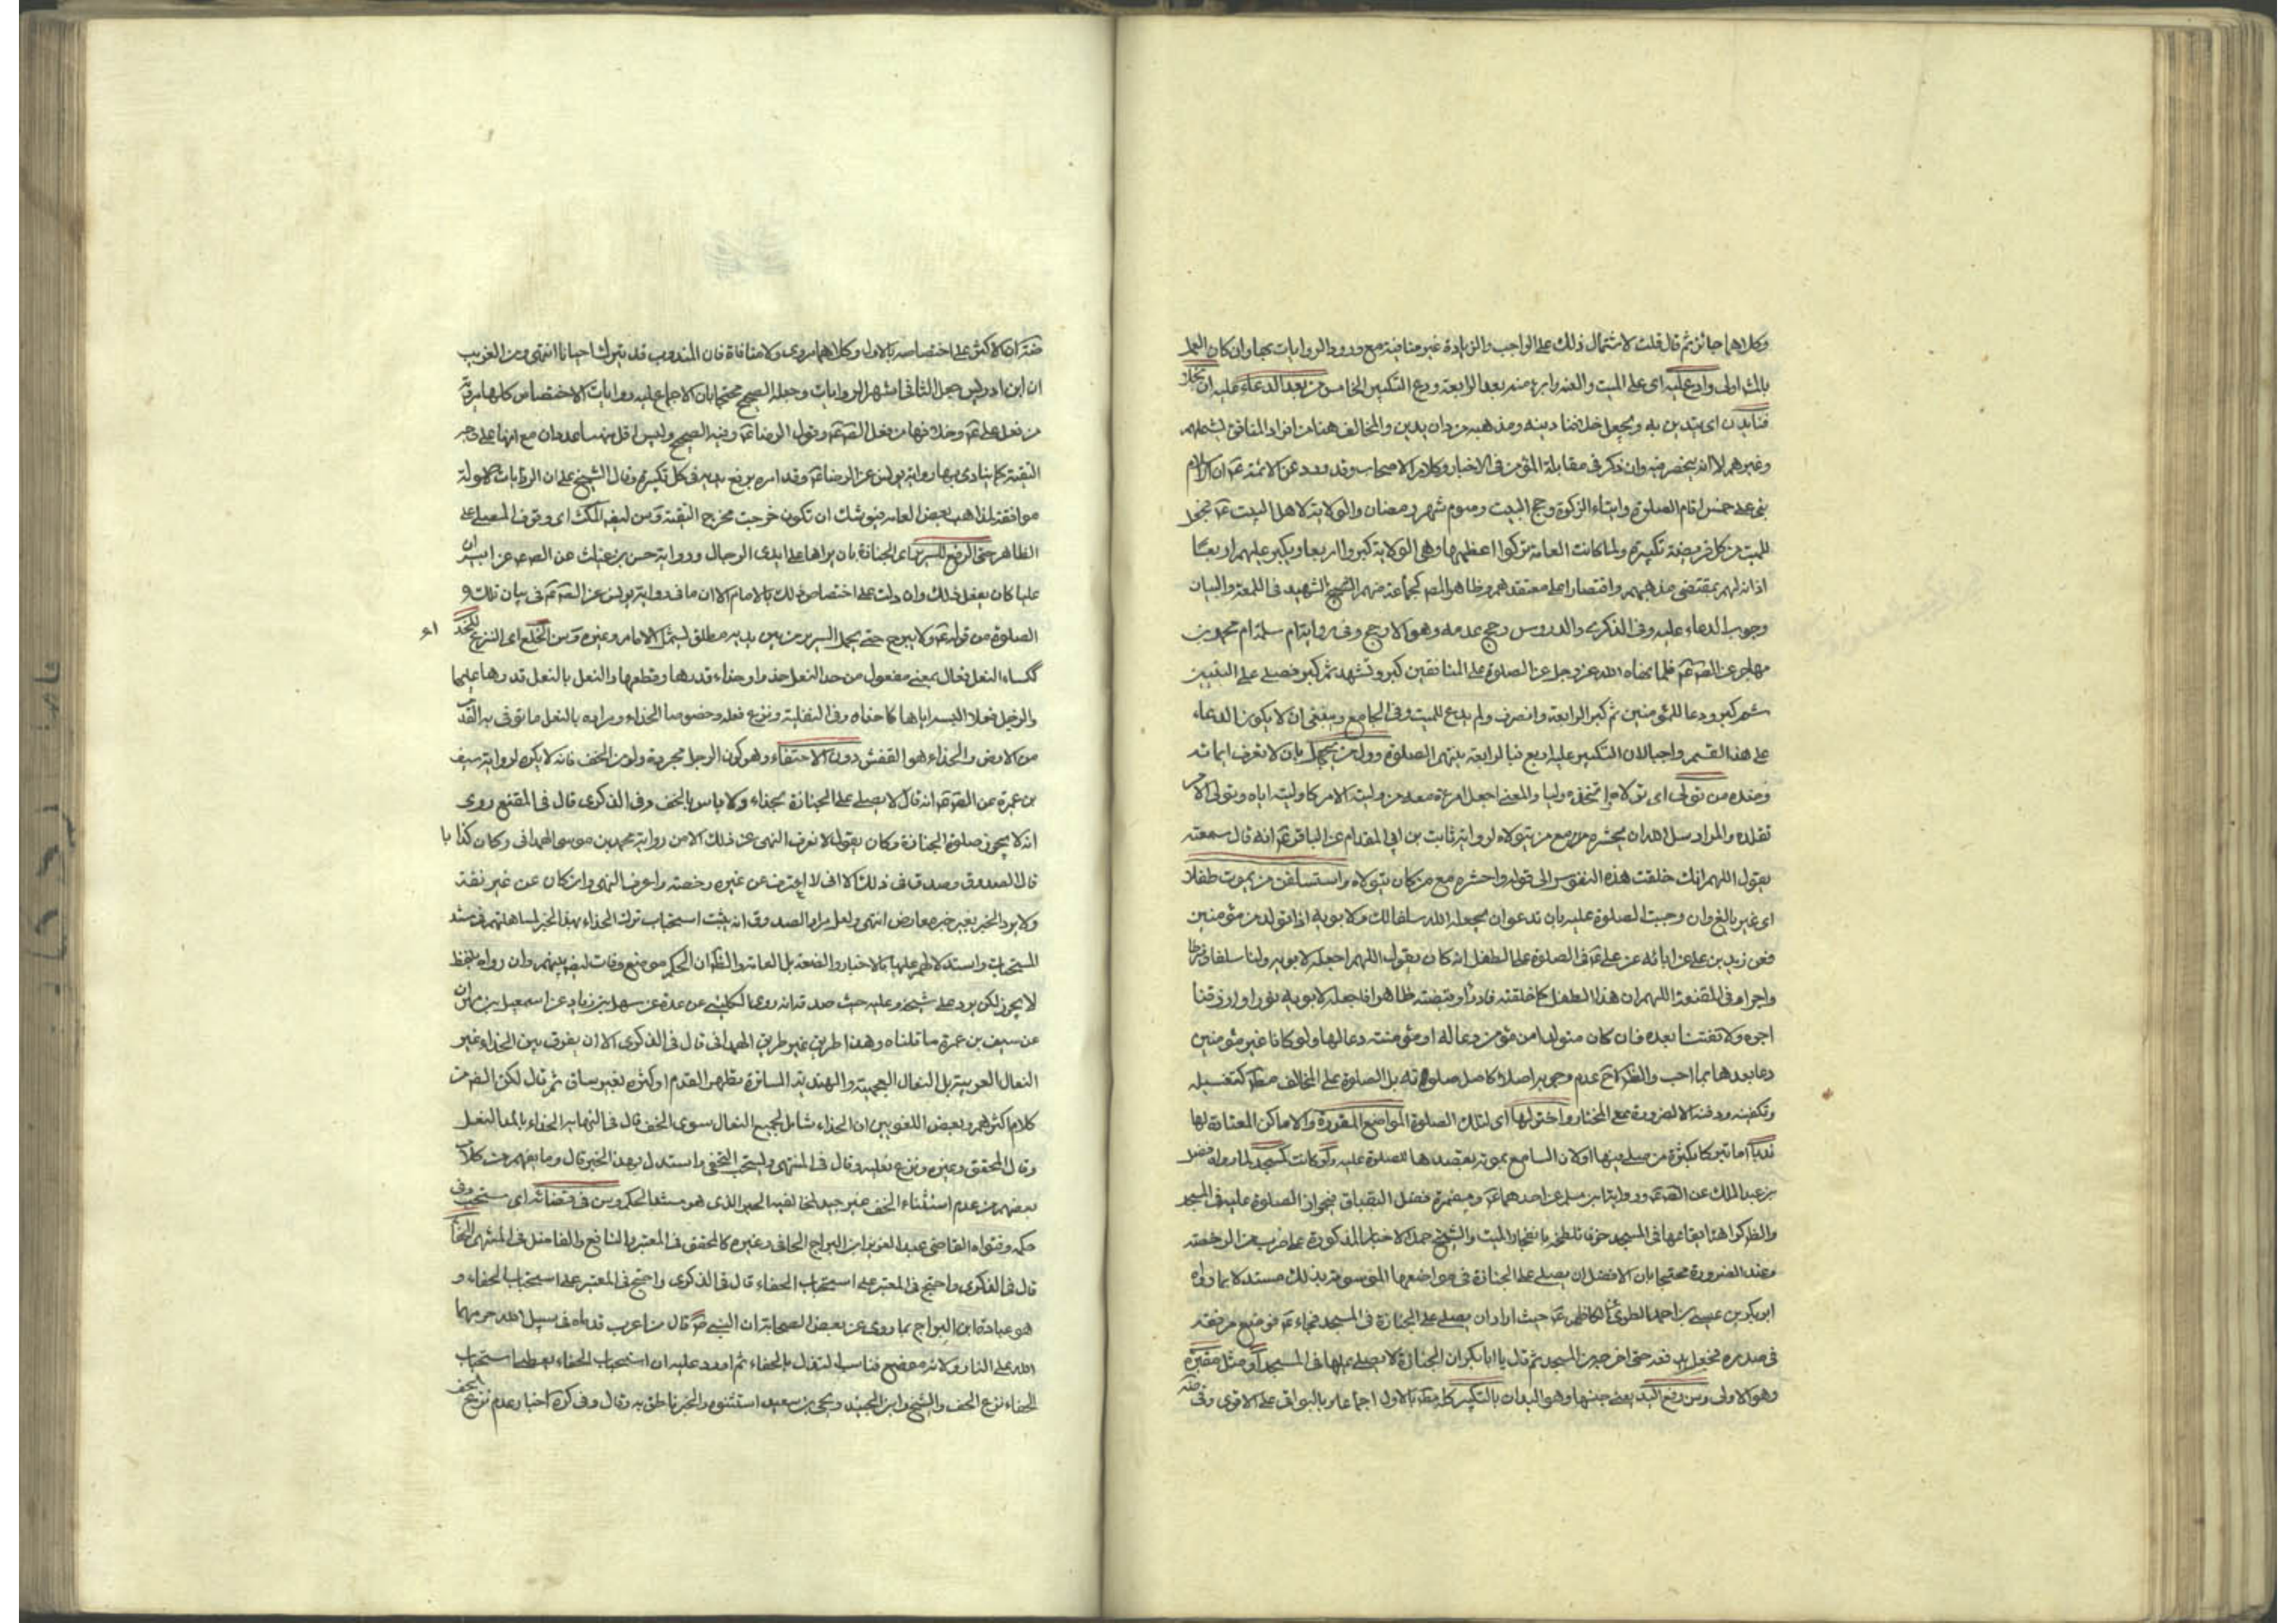 وكلاهما جائز ثم قال قلت لاشتمال ذلك على الواجب والزيادة غير منافية مع ورود الروايات بها وان كان العمل
بالك اولى وادع عليه اى على الميت والعنه وابرء منه بعد الرابعة ودع التكبير الخامس من بعد الدعاء عليه ان
فنا يدن اى يتدين به ويجعل خلافنا دينه ومذهبه من دان يدين والمخالف هنا من افراد المنافق يشملهم
وغيرهم لا انه ينحصر فيه وان ذكر فى مقابلة المؤمن فى الاخبار وكلام الاصحاب وقد ورد عن الائمة ع ان الاسلام
بنى على خمس اقام الصلوة وايتاء الزكوة وحج البيت وصوم شهر رمضان والولاية لاهل البيت ع فجعل
للميت من كل فريضة تكبيرة ولما كانت العامة تركوا اعظمها وهى الولاية كبروا اربعا ويكبر عليهم اربعا
اذانه لهم بمقتضى مذهبهم واقتصارا على معتقدهم وظاهر المص كجماعة منهم الشهيد فى اللمعة والبيان
وجوب الدعاء عليه وفى الذكرى والدروس رجح عدمه وهو الارجح وفى رواية ام سلمة ام محمد بن
مهاجر عن الص ع فلما نهاه الله عز وجل عن الصلوة على المنافقين كبر وتشهد ثم كبر فصلى على النبيين
ثم كبر ودعا للمؤمنين ثم كبر الرابعة وانصرف ولم يدع للميت وفى الجامع وينبغى ان لا يكون الدعاء
على هذا القسم واجبا لان التكبير عليه اربع فبالرابعة ينتهى الصلوة وول من يجهل بان لا تعرف ايمانه
وضده من تولى اى تولاه اتخذه وليا والمعنى اجعل امره معه من وليته الامر كاوليته اياه وتولى الامر
تقلده والمراد سل الله ان يحشره مع من يتولاه لرواية ثابت بن ابى المقدام عن الباقر ع انه قال سمعته
يقول اللهم انك خلقت هذه النفوس الى قوله واحشره مع من كان يتولاه واستسلفن من يموت طفلا
اى غير بالغ وان وجبت الصلوة عليه بان تدعو ان يجعله الله سلفا لك ولابويه اذا تولد من مؤمنين
فعن زيد بن على عن ابائه عن على ع فى الصلوة على الطفل انه كان يقول اللهم اجعله لابويه ولنا سلفا وفرطا
واجرا وفى المقنعة اللهم ان هذا الطفل كما خلقته قادرا وقبضته طاهرا فاجعله لابويه نورا وارزقنا
اجره ولا تفتنا بعده فان كان متولدا من مؤمن دعا له او مؤمنة دعا لها ولو كانا غير مؤمنين
دعا بعدها بما احب والظ ح عدم وجوبه اصلا كاصل صلوته بل الصلوة على المخالف مط كتغسيله
وتكفينه ودفنه الا لضرورة مع المختار واختر لها اى لتلك الصلوة المواضع المقررة والاماكن المعتادة لها
ندبا اما تبركا بكثرة من صلى فيها او لان السامع بموته يقصدها للصلوة عليه ولو كانت كمسجد لما رواه فضل
بن عبد الملك عن الص ع ورواية ابن مسلم عن احدهما ع ومضمرة فضل البقباق فجواز الصلوة عليه فى المسجد
والظ كراهة ايقاعها فى المسجد خوفا تلطخه بانفجار الميت والشيخ حمل الاخبار المذكورة على ضرب من الرخصة
وعند الضرورة محتجا بان الافضل ان يصلى على الجنازة فى مواضعها الموسومة بذلك مستدلا بما رواه
ابو بكر بن عيسى بن احمد العلوى الكاظم ع حيث اراد ان يصلى على الجنازة فى المسجد فجاء ع فوضع مرفقه
فى صدره فجعل يدفعه حتى اخرجه من المسجد ثم قال يا ابا بكر ان الجنازة لا يصلى عليها فى المسجد او مثل مقبرة
وهو الاولى وسن رفع اليد يعنى جنسها وهو اليدان بالتكبير كله مط بالاول اجماعا وبالبواقى على الاقوى وفى
ان الاكثر على اختصاصه بالاول وكلاهما مروى ولا منافاة فان المندوب قد يترك احيانا انتهى ومن الغريب
ان ابن ادريس جعل الثانى اشهر الروايات وجعله الصحيح محتجا بان الاجماع عليه وروايات الاختصاص كلها مروية
من فعل على ع وخلافها من فعل الص ع وقول الرضا ع وفيه الصحيح وليس اقل منه ساعدوان مع انها على وجه
التقية كما ينادى بها رواية يونس عن الرضا ع وقد امره برفع يديه فى كل تكبيرة وقال الشيخ على ان الروايات الاولة
موافقة لمذاهب بعض العامة فيوشك ان تكون خرجت مخرج التقية وسن لبث المكث اى وقوف المصلى على
الظاهر حتى الرفع للسرير اى الجنازة بان يراها على ايدى الرجال ورواية حسن بن غياث عن الص ع عن ابيه ان
عليا كان يفعل ذلك وان دلت على اختصاص ذلك بالامام الا ان ما فى رواية يونس عن الص ع فى بيان تلك و
الصلوة من قوله ع ولا يبرح حتى يحمل السرير من بين يديه مطلق يشمل الامام وغيره وسن الخلع اى النزع للحذا
ككساء النعل فعال بمعنى مفعول من حذا النعل حذوا وحذاء قدرها وقطعها والنعل بالنعل قدرها عليها
والرجل فعلا البسه اياها كاحذاه وفى النفلية ونزع نعله وخصوصا الحذاء ومراده بالنعل ما توقى به القدم
من الارض والحذاء هو القفش دون الاحتفاء وهو كون الرجل مجردة ولو من الخف فانه لا يكره لرواية سيف
بن عميرة عن الص ع انه قال لا يصلى على الجنازة بحذاء ولا باس بالخف وفى الذكرى قال فى المقنع روى
انه لا يجوز صلوة الجنازة وكان يقول لا نعرف النهى عن ذلك الا من رواية محمد بن موسى الهمدانى وكان كذابا
قال الصدوق وصدق فى ذلك الا انى لا اعرف عن غيره رخصة واعرف النهى وان كان عن غير ثقة
ولا يرد الخبر بغير خبر معارض انتهى ولعل مراد الصدوق انه يثبت استحباب ترك الحذاء بهذا الخبر لمساهلتهم فى سند
المستحبات واستدلالهم عليها بالاخبار والضعفة بل العامة والظ ان الحكم موضع وفات لبعضهم وان رواه بلفظ
لا يجوز لكن يرد على شيخه وعليه حيث صدقه انه روى الكلينى عن عدة عن سهل بن زياد عن اسمعيل بن مهران
عن سيف بن عميرة ما قلناه وهذا طريق غير طريق الهمدانى قال فى الذكرى الا ان يفرق بين الحذاء وغير
النعال العربية بل النعال العجمية والهندية الساترة بظهر القدم او كثره بغير ساق ثم قال لكن الظ من
كلام اكثرهم وبعض اللغويين ان الحذاء شامل لجميع النعال سوى الخف قال فى النهاية الحذاء بالمد النعل
وقال المحقق وغيره ونزع نعليه وقال فى المنتهى وليستحب التحفى واستدل بهذا الخبر قال وما يفهم من كلام
بعضهم من عدم استثناء الخف غير جيد لمخالفته الخبر الذى هو مستند الحكم وسن فى قضائه اى مستحب وفى
حكمه وفتواه القاضى عبد العزيز ابن البراج الحافى وغيره كالمحقق فى المعتبر والنافع والفاضل فى المنتهى الحفا
قال فى الذكرى واحتج فى المعتبر على استحباب الحفاء قال فى الذكرى واحتج فى المعتبر على استحباب الحفاء و
هو عبادة ابن البراج بما روى عن بعض الصحابة ان النبى ص قال من اغبرت قدماه فى سبيل الله حرمهما
الله على النار ولانه موضع فناسب التذلل بالحفاء ثم اورد عليه ان استحباب الحفاء يعطى استحباب
الحفاء نزع الخف والشيخ وابن الجنيد ويحيى بن سعيد استثنوه والخبر ناطق به وقال وفى كره اختار عدم نزع الخف